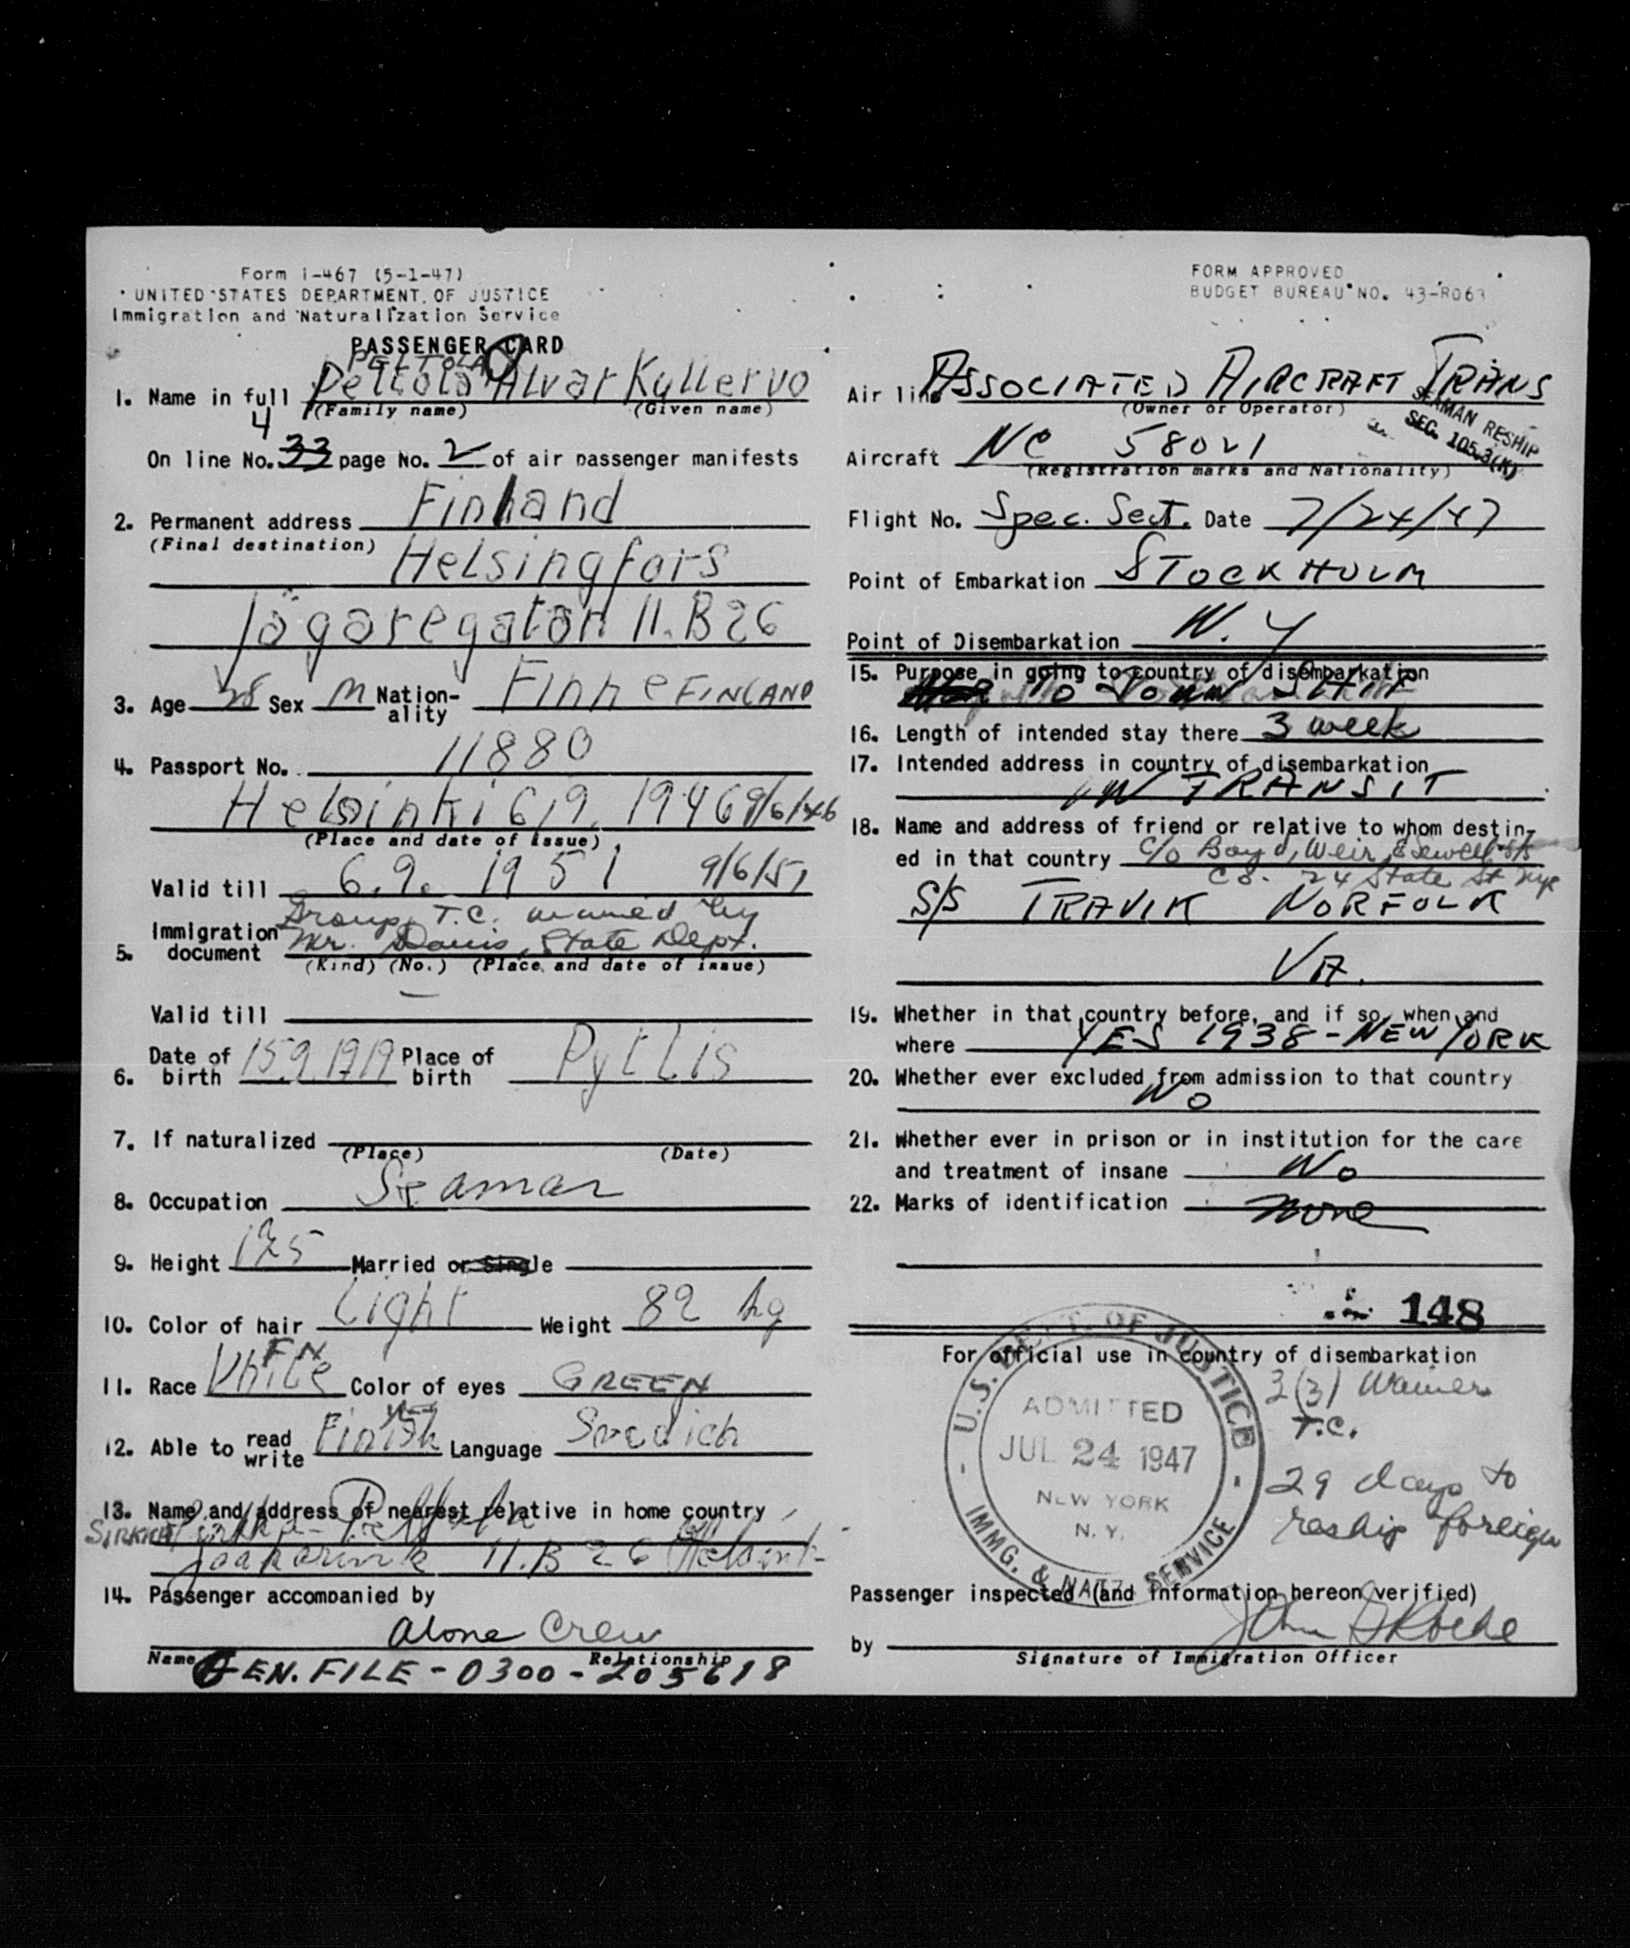 Form I-467 (5-1-47)
UNITED STATES DEPARTMENT OF JUSTICE
Immigration and Naturalization Service
PASSENGER CARD
PELTOLA
1. Name in full Peltola Alvar Kyllervo
(Family name) (Given name)
4
On line No. 33 page No. 2 of air passenger manifests
2. Permanent address Finland
(Final destination) Helsingfors
Jägaregatan 11.B26
3. Age 28 Sex M Nation-ality Finne FINLAND
4. Passport No. 11880
Helsinki 6/9. 1946 9/6/46
(Place and date of issue)
Valid till 6.9. 1951 9/6/51
Group T.C. waived by
5. Immigration document Mr. Davis, State Dept.
(Kind) (No.) (Place and date of issue)
Valid till —
6. Date of birth 15.9.1919 Place of birth Pyttis
7. If naturalized
(Place) (Date)
8. Occupation Seaman
9. Height 175 Married or Single
10. Color of hair Light Weight 82 kg
FN
11. Race White Color of eyes GREEN
yes
12. Able to read write Finish Language Svedich
13. Name and address of nearest relative in home country
SIRKKA Sirkka Peltola
11.B 26 Helsinki
14. Passenger accompanied by
alone Crew
Name Relationship
GEN. FILE - 0300 - 205618
FORM APPROVED
BUDGET BUREAU NO. 43-R063
Air line ASSOCIATED AIRCRAFT TRANS
(Owner or Operator)
SEAMAN RESHIP
SEC. 105.3(K)
Aircraft NC 58021
(Registration marks and Nationality)
Flight No. Spec. Sect. Date 7/24/47
Point of Embarkation STOCKHOLM
Point of Disembarkation N.Y
15. Purpose in going to country of disembarkation
TO JOIN SHIP
16. Length of intended stay there 3 week
17. Intended address in country of disembarkation
IN TRANSIT
18. Name and address of friend or relative to whom destin-
ed in that country c/o Boyd, Weir, & Sewell
Co. 24 State St NYC
S/S TRAVIK NORFOLK
VA.
19. Whether in that country before, and if so, when and
where YES 1938 - NEW YORK
20. Whether ever excluded from admission to that country
No
21. Whether ever in prison or in institution for the care
and treatment of insane No
22. Marks of identification none
148
For official use in country of disembarkation
U.S. DEPT. OF JUSTICE
ADMITTED
JUL 24 1947
NEW YORK
N. Y.
IMMG. & NATZ. SERVICE
3(3) Waiver
T.C.
29 days to
reship foreign
Passenger inspected (and information hereon verified)
by John
Signature of Immigration Officer